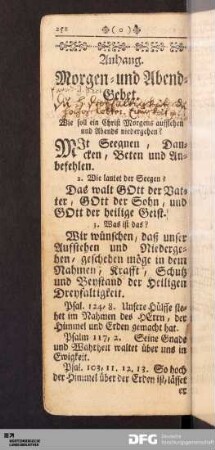 250 ❀ ( o ) ❀
Anhang.
Morgen- und Abend-
Gebet.
Wie soll ein Christ Morgens aufstehen
und Abends niedergehen?
MIt Seegnen, Dan-
cken, Beten und An-
befehlen.
2. Wie lautet der Seegen?
Das walt GOtt der Vat-
ter, GOtt der Sohn, und
GOtt der heilige Geist.
3. Was ist das?
Wir wünschen, daß unser
Aufstehen und Niederge-
hen, geschehen möge in dem
Nahmen, Krafft, Schutz
und Beystand der Heiligen
Dreyfaltigkeit.
Psal. 124, 8. Unsere Hülffe ste-
het im Nahmen des HErrn, der
Himmel und Erden gemacht hat.
Psalm 117, 2. Seine Gnade
und Wahrheit waltet über uns in
Ewigkeit.
Psal. 103, 11. 12. 13. So hoch
der Himmel über der Erden ist, lässet
er
DFG Deutsche
Forschungsgemeinschaft